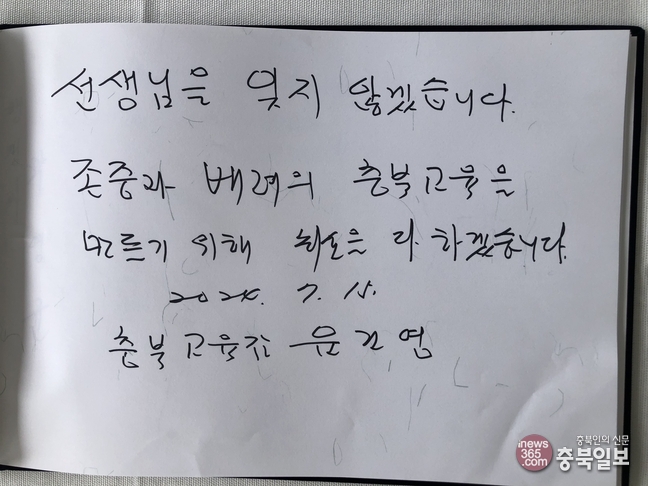 선생님을 잊지 않겠습니다.
존중과 배려의 충북교육을
만들기 위해 최선을 다 하겠습니다.
2024. 7. 15.
충북교육감 윤건영
inews
365
.com
충북인의 신문
충북일보